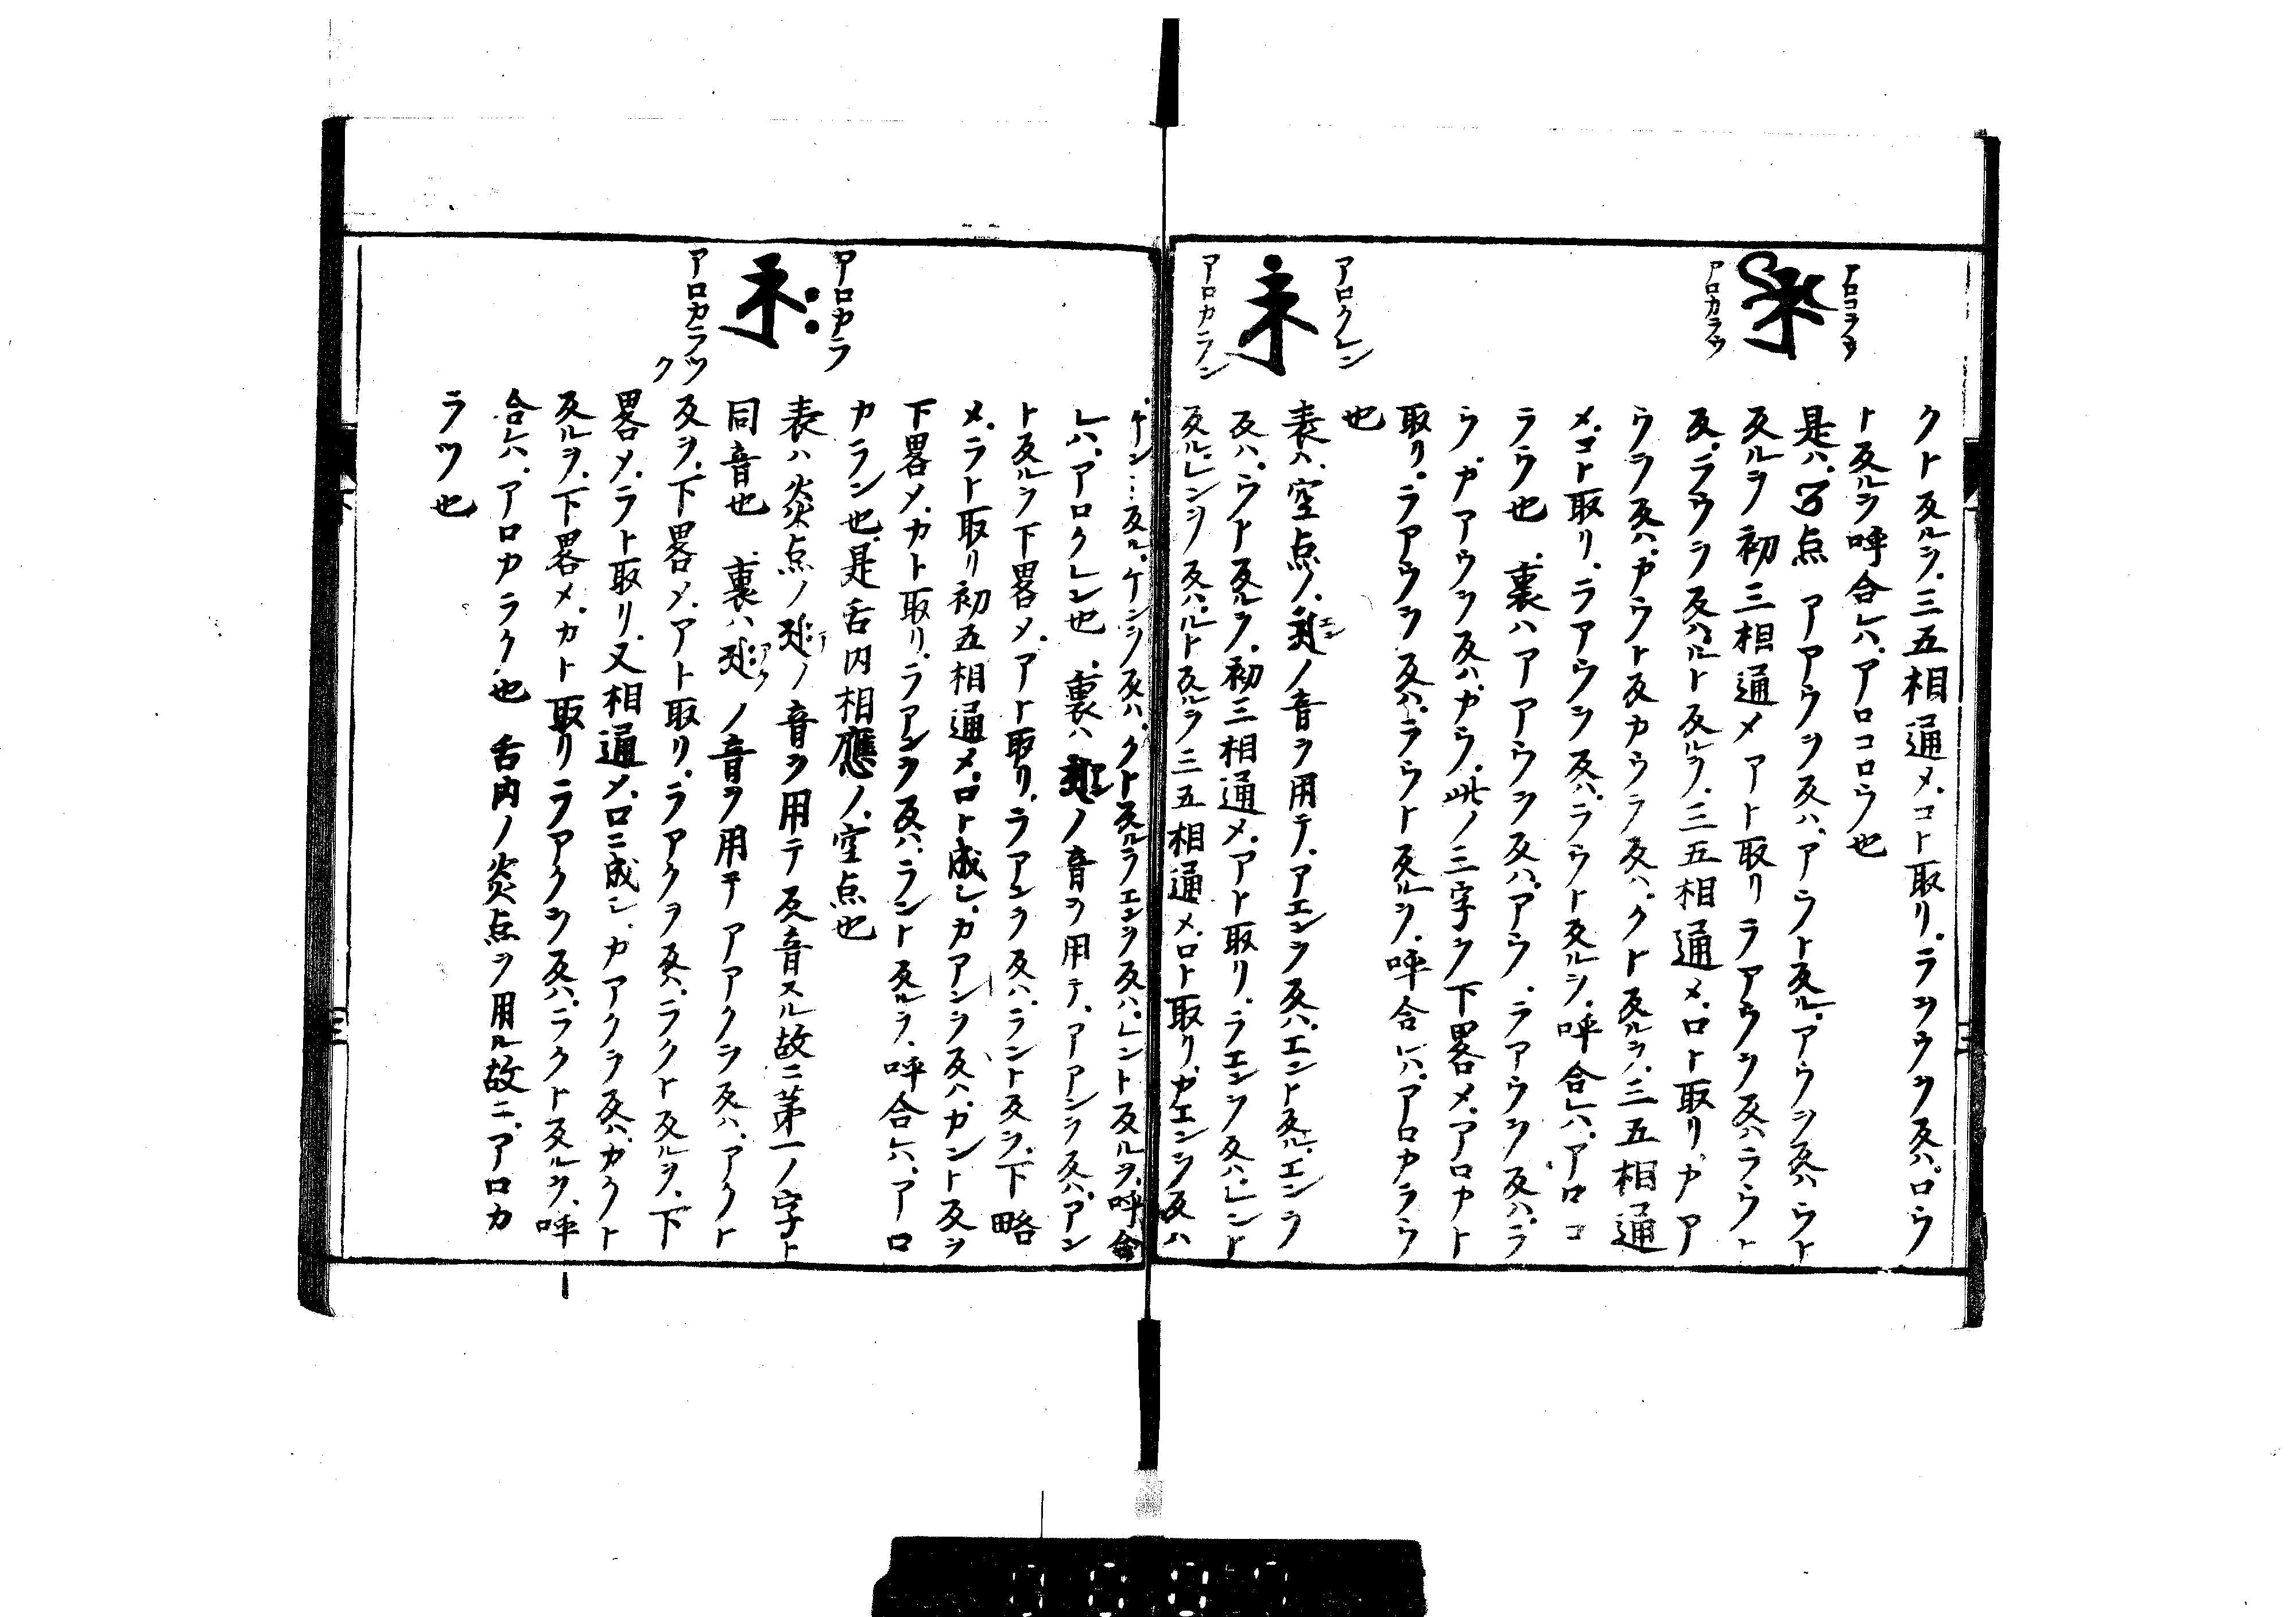 クト反ルヲ、三五相通メ、コト取リ、ラヲウヲ反ハ、ロウ
ト反ルヲ呼合レハ、アロコロウ也
アロコラウ
アロカラウ
是ハ、点 アアウヲ反ハ、アウト反ル、アウヲ反ハウト
反ルヲ初三相通メアト取リラアウヲ反ハラウト
反、ラウヲ反ハルト反ルヲ、三五相通メ、ロト取リ、カア
ウヲ反ハ、カウト反カウヲ反ハ、クト反ルヲ、三五相通
メ、コト取リ、ラアウヲ反ハ、ラウト反ルヲ、呼合レハ、アロコ
ラウ也 裏ハアアウヲ反ハ、アウ、ラアウヲ反ハ、ラ
ウ、カアウヲ反ハ、カウ、此ノ三字ヲ下畧メ、アロカト
取リ、ラアウヲ反ハ、ラウト反ルヲ、呼合レハ、アロカラウ
也
アロクレン
アロカラン
表ハ、空点ノ、エンノ音ヲ用テ、アエンヲ反ハ、エント反ル、エンヲ
反ハ、ウト反ルヲ、初三相通メ、アト取リ、ラエンヲ反ハ、レント
反ル、レンヲ反ハ、ルト反ルヲ三五相通メ、ロト取リ、カエンヲ反ハ
ケン反ル、ケンヲ反ハ、クト反ルラエンヲ反ハ、レント反ルヲ、呼合
レハ、アロクレン也 裏ハノ音ヲ用テ、アアンヲ反ハ、アン
ト反ルヲ下畧メ、アト取リ、ラアンヲ反ハ、ラント反ヲ、下略
メ、ラト取リ初五相通メ、ロト成シ、カアンヲ反ハ、カント反ヲ
下畧メ、カト取リ、ラアンヲ反ハ、ラント反ルヲ、呼合レハ、アロ
カラン也是舌内相應ノ、空点也
アロカラ
アロカラツ
ク
表ハ炎点ノアノ音ヲ用テ反音スル故ニ第一ノ字ト
同音也 裏ハアクノ音ヲ用テアアクヲ反ハ、アクト
反ヲ、下畧メ、アト取リ、ラアクヲ反ハ、ラクト反ルヲ、下
畧メ、ラト取リ、又相通メ、ロニ成シ、カアクヲ反ハ、カクト
反ルヲ、下畧メ、カト取リラアクヲ反ハ、ラクト反ルヲ、呼
合レハ、アロカラク也 舌内ノ炎点ヲ用ル故ニ、アロカ
ラツ也